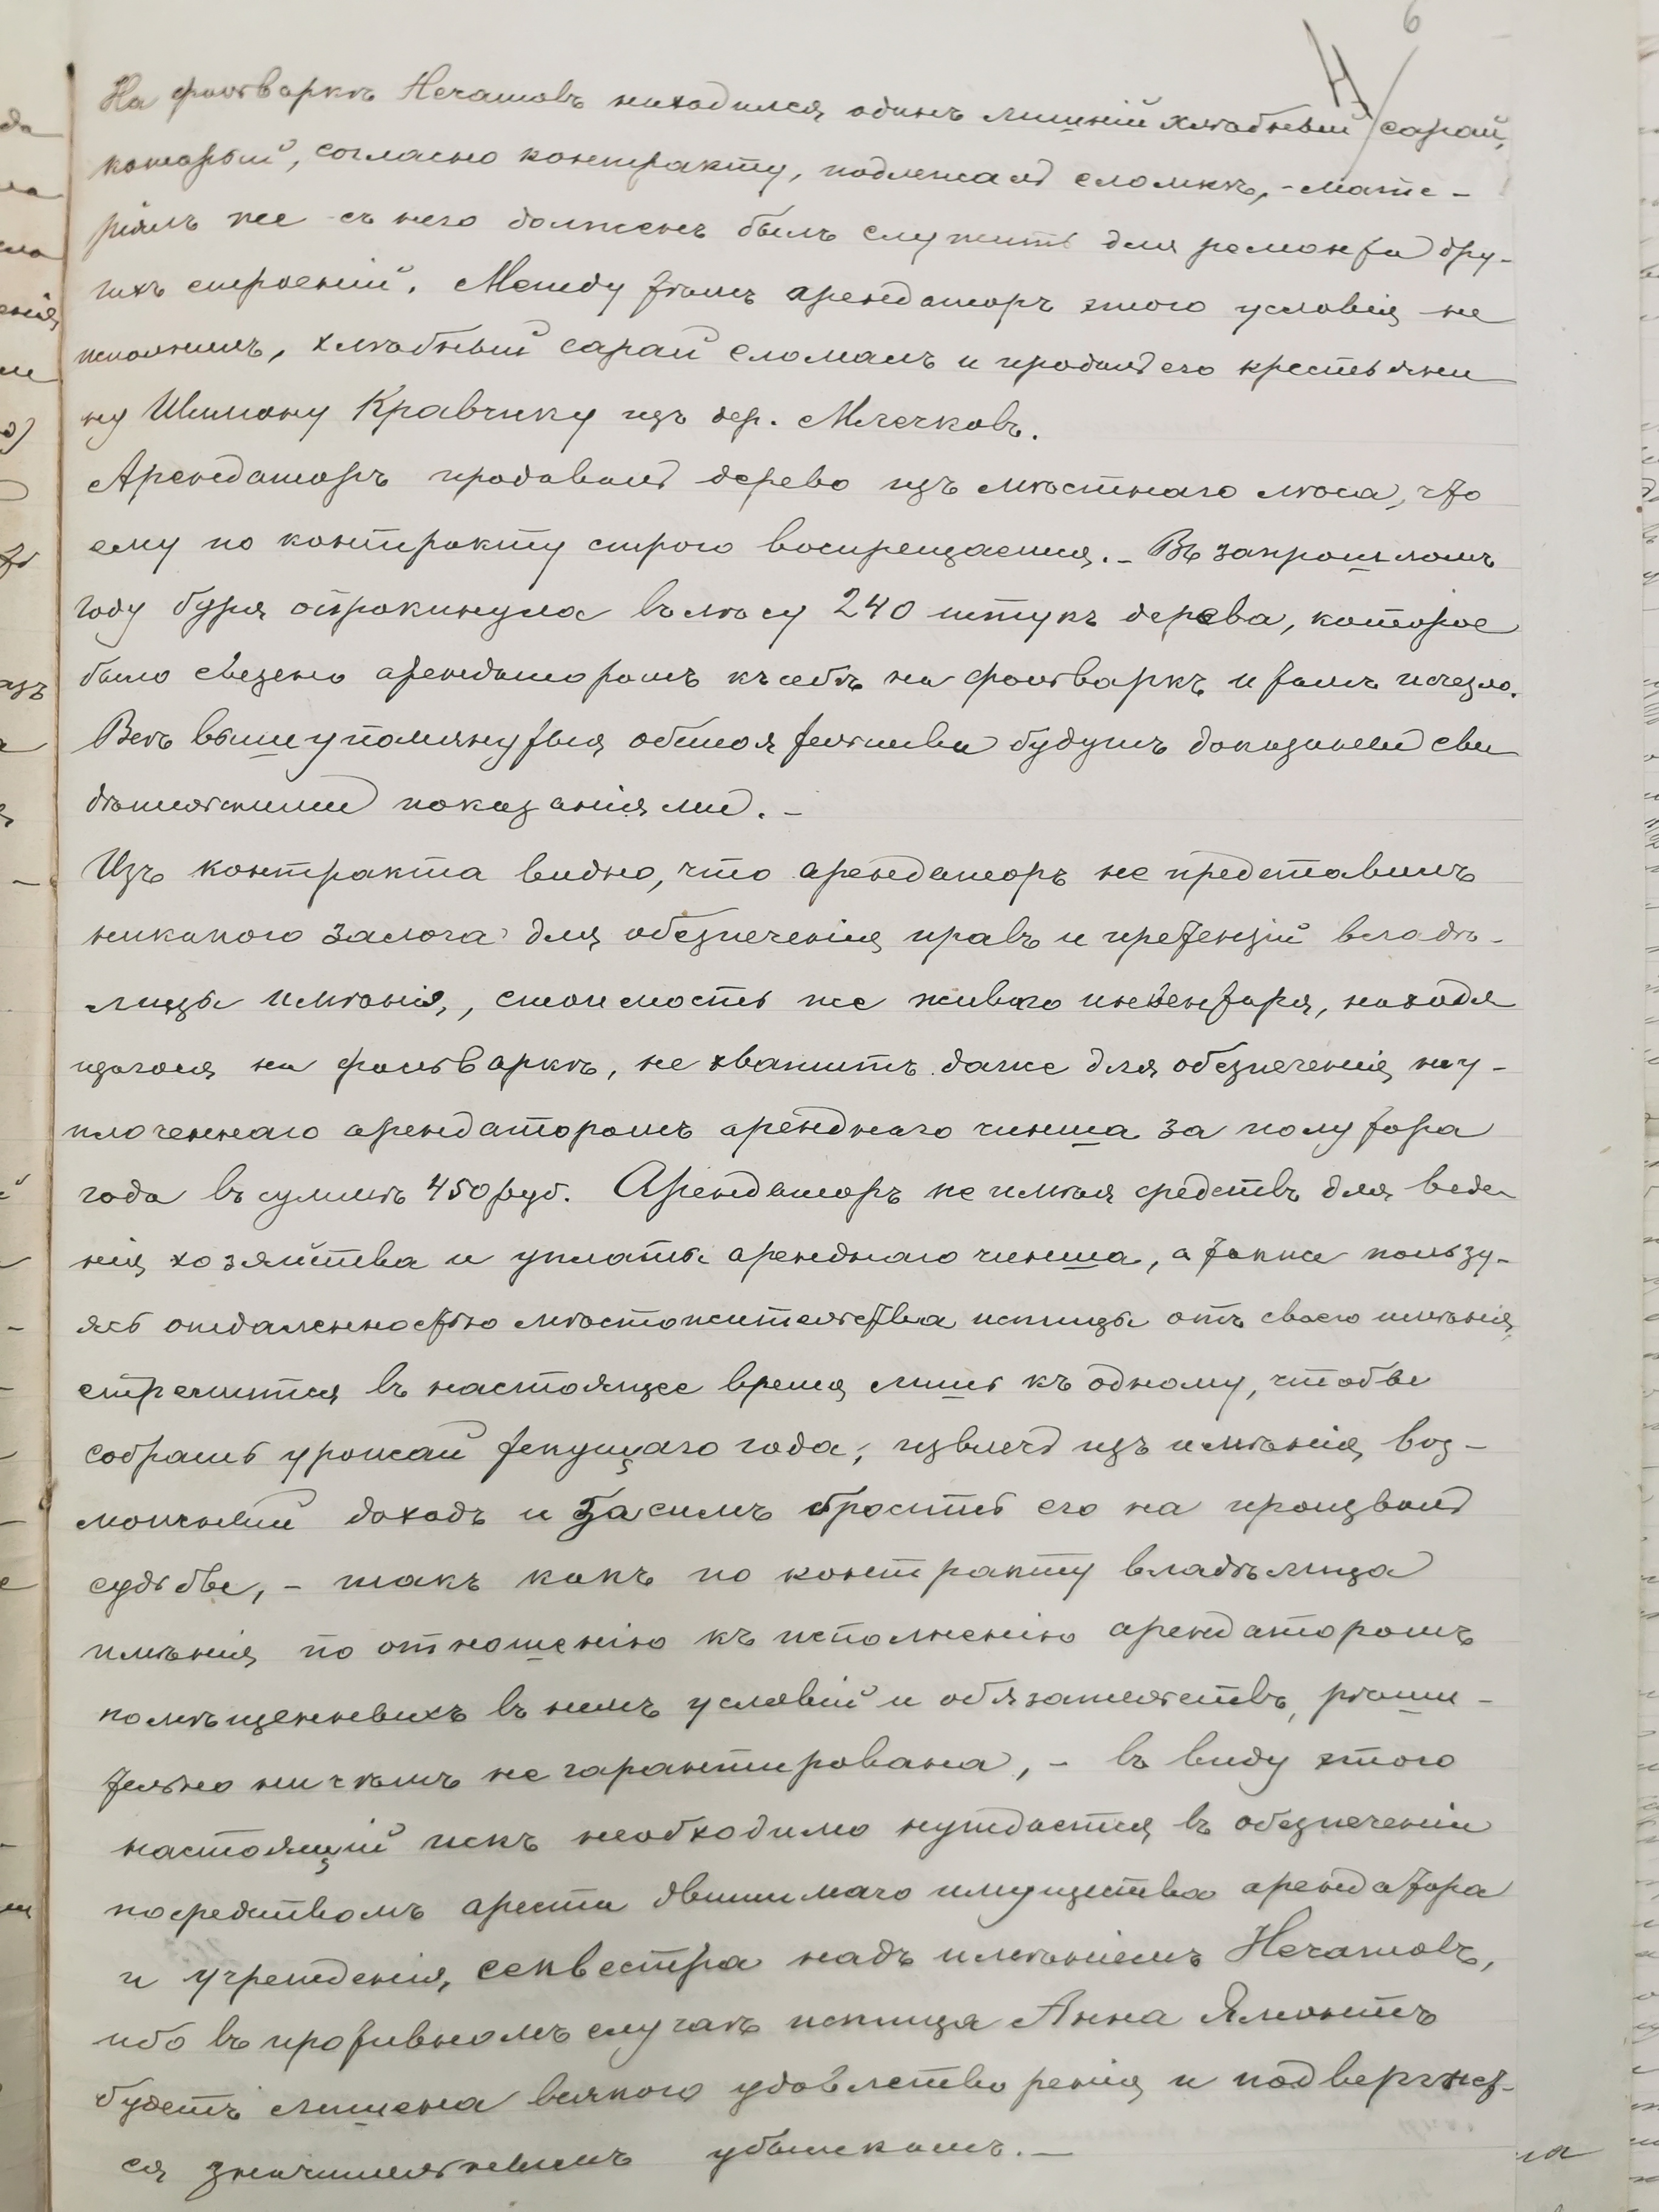 6
На фольваркѣ Нечатовъ находился одинъ лишній хлѣбный сарай,
который, согласно контракту, подлежалъ сломкѣ, - мате-
ріялъ же съ него долженъ былъ служить для ремонта дру-
гихъ строеній. Между тѣмъ арендаторъ этого условія не
исполнилъ, хлѣбный сарай сломалъ и продалъ его крестьяни
ну Шимону Кравчику изъ дер. Млечковъ.
Арендаторъ продавалъ дерево изъ мѣстнаго лѣса, что
ему по контракту строго воспрещается. - Въ запрошломъ
году буря опрокинула въ лѣсу 240 штукъ дерева, которое
было свезено арендаторомъ къ себѣ на фольваркъ и тамъ исчезло.
Всѣ вышеупомянутыя обстоятельства будутъ доказаны сви
дѣтельскими показаніями. -
Изъ контракта видно, что арендаторъ не представилъ
никакого залога для обезпеченія правъ и претензій владѣ-
лицы имѣнія, стоимость же живаго инвентаря, находя
щагося на фольваркѣ, не хватитъ даже для обезпеченія неу-
плоченнаго арендаторомъ аренднаго чинша за полтора
года въ суммѣ 450 руб. Арендаторъ не имѣя средствъ для веде
нія хозяйства и уплаты аренднаго чинша, а также пользу-
ясь отдаленностью мѣстожительства истицы отъ своего имѣнія,
стремится въ настоящее время лишь къ одному, чтобы
собрать урожай текущаго года, извлечь изъ имѣнія воз-
можный доходъ и засимъ бросить его на произволъ
судьбы, - такъ какъ по контракту владѣлица
имѣнія по отношенію къ исполненію арендаторомъ
помѣщенныхъ въ немъ условій и обязательствъ, рѣши-
тельно ничѣмъ не гарантирована, - въ виду этого
настоящій искъ необходимо нуждается въ обезпеченіи
посредствомъ ареста движимаго имущества арендатора
и учрежденія секвестра надъ имѣніемъ Нечатовъ,
ибо въ противномъ случаѣ истица Анна Ямонтъ
будетъ лишена всякого удовлетворенія и подвергнет-
ся значительнымъ убыткамъ. -